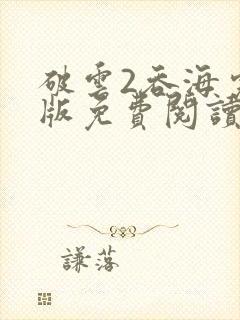 破雲2吞海
版免費閱讀
謙落